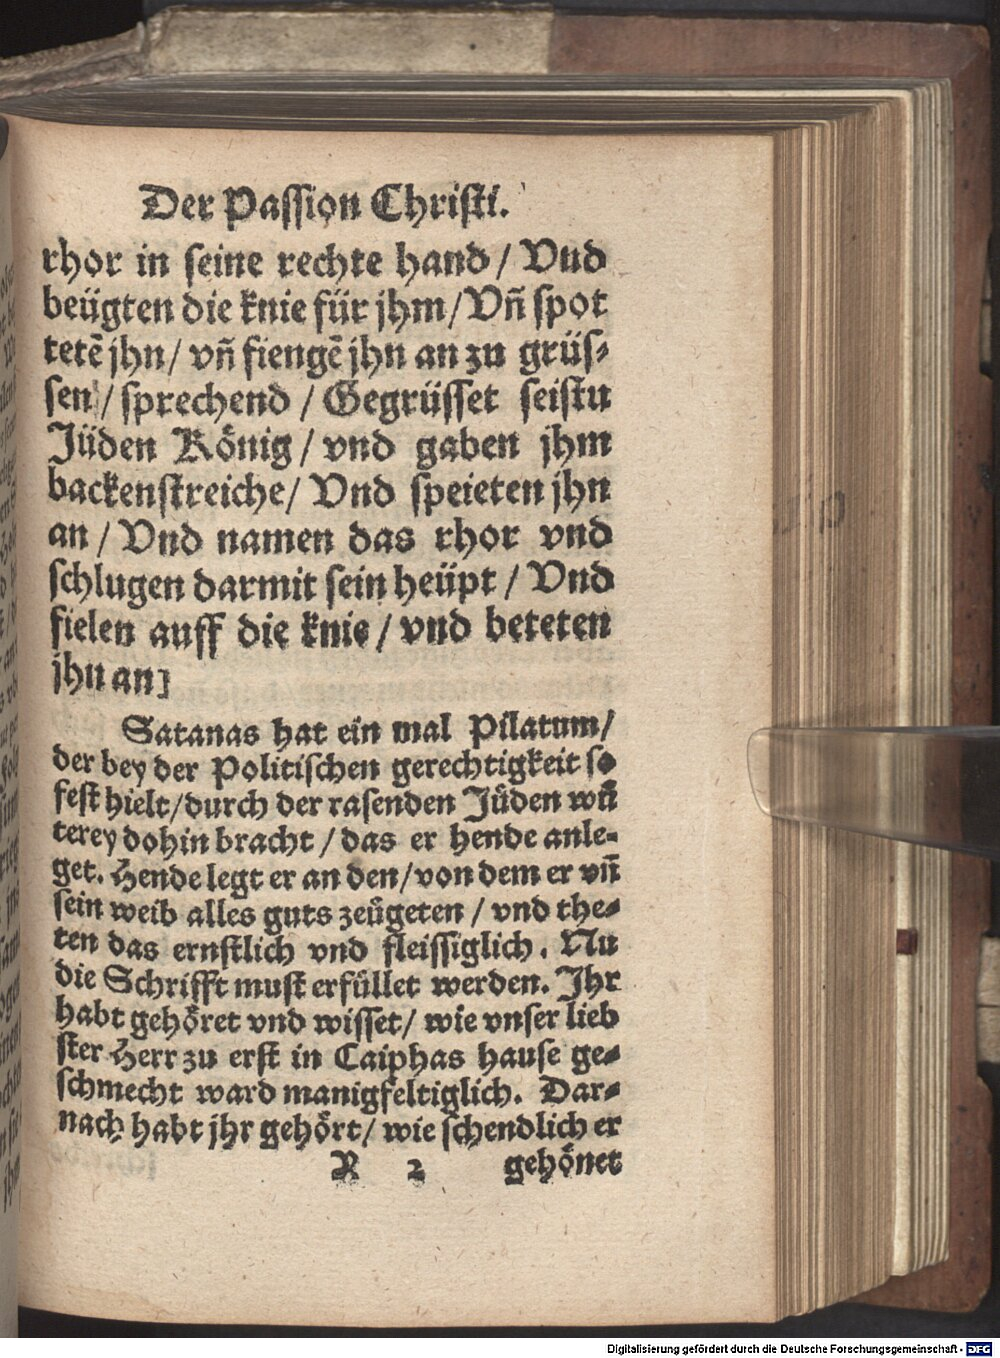 Der Passion Christi.
rhor in seine rechte hand / Vnd
beügten die knie für jhm / Vñ spot
tetẽ jhn / vñ fiengẽ jhn an zu grüs⸗
sen / sprechend / Gegrüsset seistu
Jüden König / vnd gaben jhm
backenstreiche / Vnd speieten jhn
an / Vnd namen das rhor vnd
schlugen darmit sein heüpt / Vnd
fielen auff die knie / vnd beteten
jhn an]
Satanas hat ein mal Pilatum /
der bey der Politischen gerechtigkeit so
fest hielt / durch der rasenden Jüden wü
terey dohin bracht / das er hende anle⸗
get. Hende legt er an den / von dem er vñ
sein weib alles guts zeügeten / vnd the⸗
ten das ernstlich vnd fleissiglich. Nu
die Schrifft must erfüllet werden. Jhr
habt gehöret vnd wisset / wie vnser lieb
ster Herr zu erst in Caiphas hause ge⸗
schmecht ward manigfeltiglich. Dar⸗
nach habt jhr gehört / wie schendlich er
R 2 gehönet
Digitalisierung gefördert durch die Deutsche Forschungsgemeinschaft - DFG